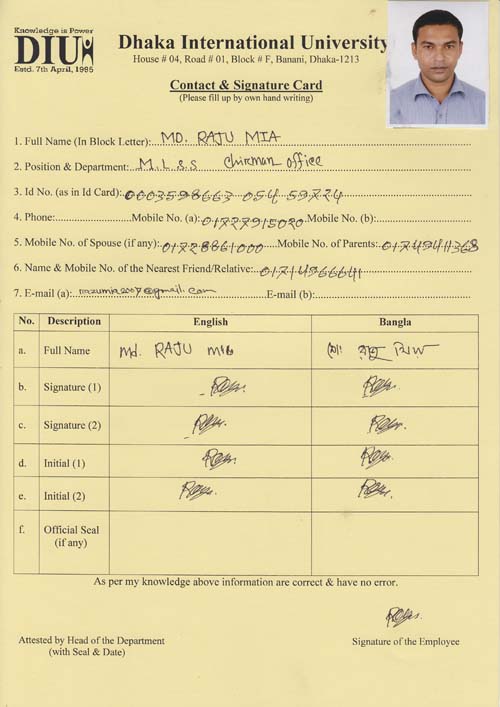 Knowledge is Power
DIU
Estd. 7th April, 1995
Dhaka International University
House # 04, Road # 01, Block # F, Banani, Dhaka-1213
Contact & Signature Card
(Please fill up by own hand writing)
1. Full Name (In Block Letter): MD. RAJU MIA
2. Position & Department: M.L.S.S Chirman office
3. Id No. (as in Id Card): 0003598663 054 59724
4. Phone: Mobile No. (a): 01727915020 Mobile No. (b):
5. Mobile No. of Spouse (if any): 01728861000 Mobile No. of Parents: 01749411368
6. Name & Mobile No. of the Nearest Friend/Relative: 01714966641
7. E-mail (a): razumia2007@gmail.com E-mail (b):
No. Description English Bangla
a. Full Name Md. RAJU MIA মোঃ রাজু মিয়া
b. Signature (1)
c. Signature (2)
d. Initial (1)
e. Initial (2)
f. Official Seal
(if any)
As per my knowledge above information are correct & have no error.
Attested by Head of the Department
(with Seal & Date)
Signature of the Employee